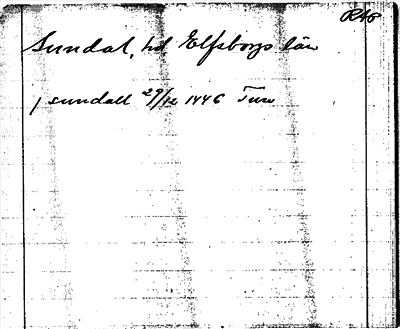 RAP
Sundal, hd, Elfsborgs län
j sundall 29/12 1446 Ture